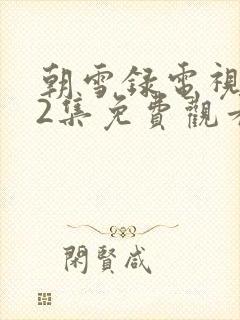 朝雪録電視
2集免費觀看
閑賢咸